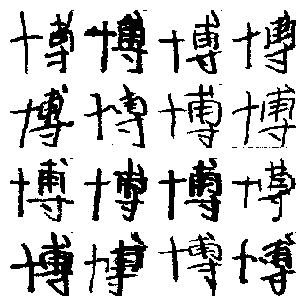 博博博博
博博博博
博博博博
博博博博